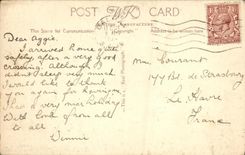 POST CARD
This Space for Communication
Dear Aggie
I arrived Home quite
safely after a very good
crossing. Although I
didn't sleep very much
Would like to thank
you again for having
Has a very nice holiday
With love from all
to all.
Winnie
Mrs Sourant
177 Bd de Strasbourg
Le Havre
France